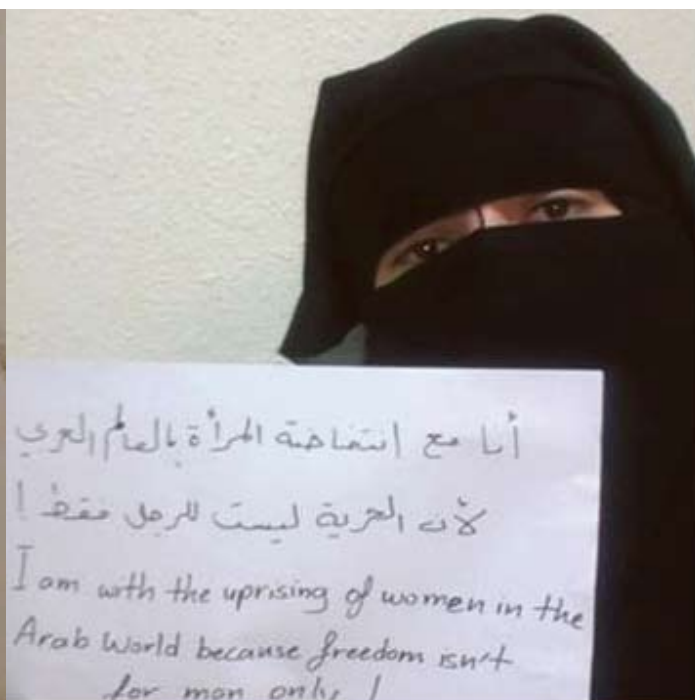 أنا مع انتفاضة المرأة بالعالم العربي
لأن الحرية ليست للرجل فقط !
I am with the uprising of women in the
Arab World because freedom isn't
for man only !